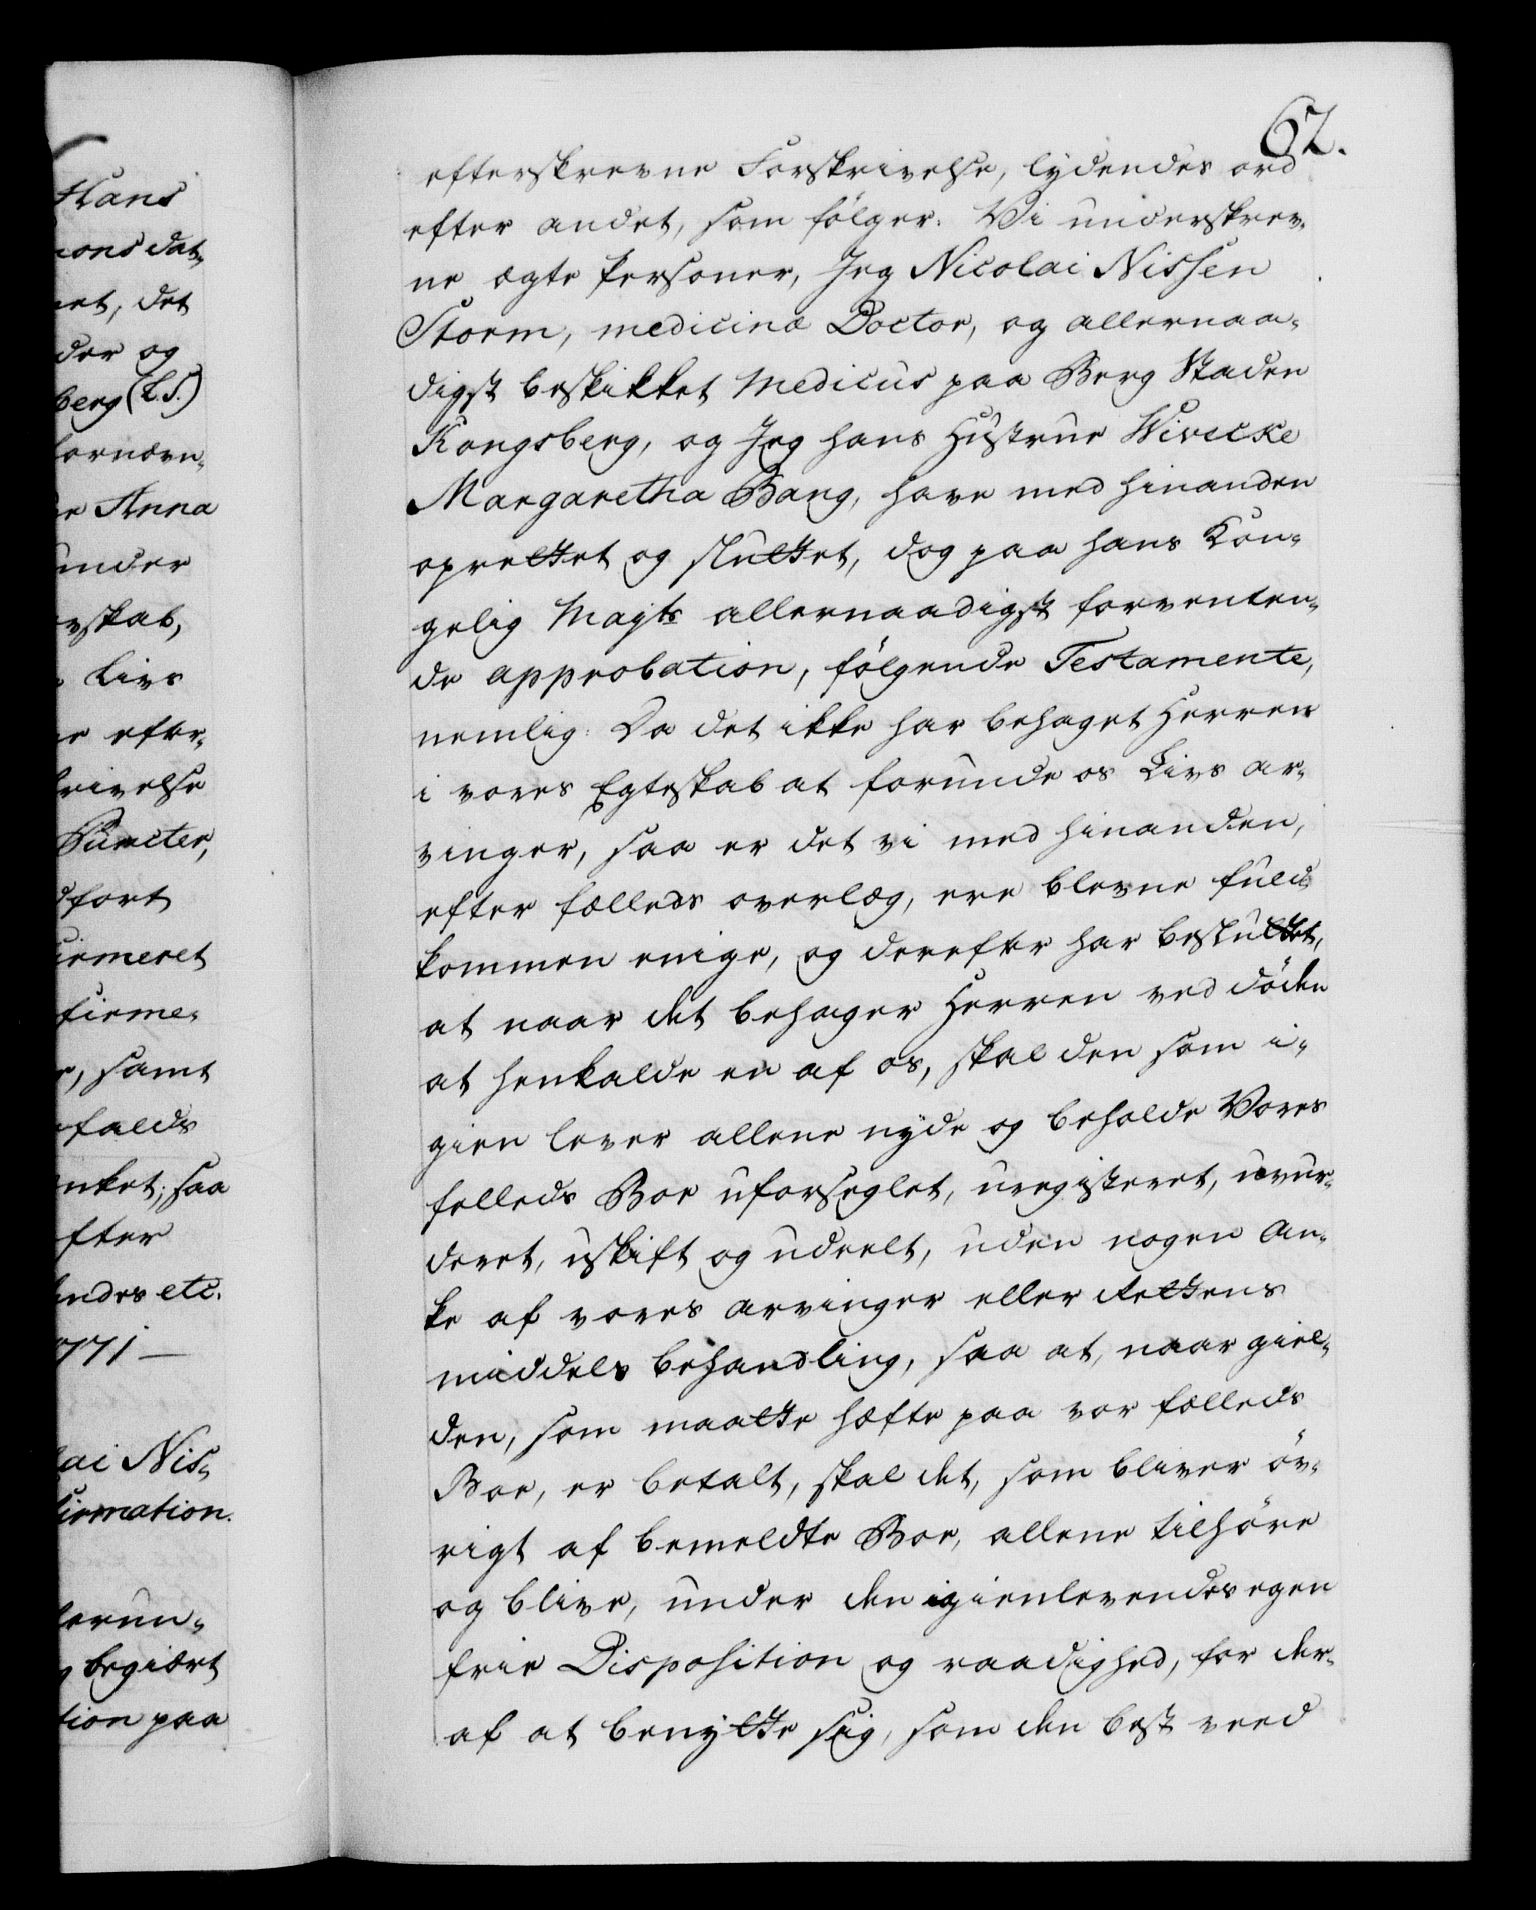 62.
efterskrevne Forskrivelse, lydendes ord
efter andet, som følger: Vi underskrev-
ne ægte Personer, Jeg Nicolai Nissen
Storm, medicinæ Doctor, og allernaa-
digst beskikket Medicus paa Berg Staden
Kongsberg, og Jeg hans Hustrue Wivecke
Margaretha Bang, have med hinanden
oprettet og sluttet, dog paa hans Kon-
gelig Mayts allernaadigst forventen-
de approbation, følgende Testamente,
nemlig: Da det ikke har behaget Herren
i vores Egteskab at forunde os Livs ar-
vinger, saa er det vi med hinanden,
efter fælleds overlæg, ere blevne fuld-
kommen enige, og derefter har besluttet,
at naar det behager Herren ved døden
at henkalde en af os, skal den som i-
gien lever allene nyde og beholde Vores
felleds Boe uforseglet, uregisteret, uvur-
deret, uskift og udeelt, uden nogen an-
ke af vores arvinger eller Rettens
middels behandling, saa at, naar giel-
den, som maatte hæfte paa vor fælleds
Boe, er betalt, skal det, som bliver öv-
rigt af bemeldte Boe, allene tilhøre
og blive, under den igienlevendes egen
frie Disposition og raadighed, for der-
af at benytte sig, som den best veed
Hans
mons dat-
net, det
der og
berg (L.S.)
fornævn-
e Anna
under
vskab,
Livs
e efter-
krivelse
Puncter,
dført
firmeret
firme-
r, samt
falds
nket; saa
fter
endes etc.
1771 —
lai Nis-
firmation.
lerun-
g begiært
tion paa